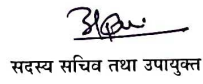 सदस्य सचिव तथा उपायुक्त